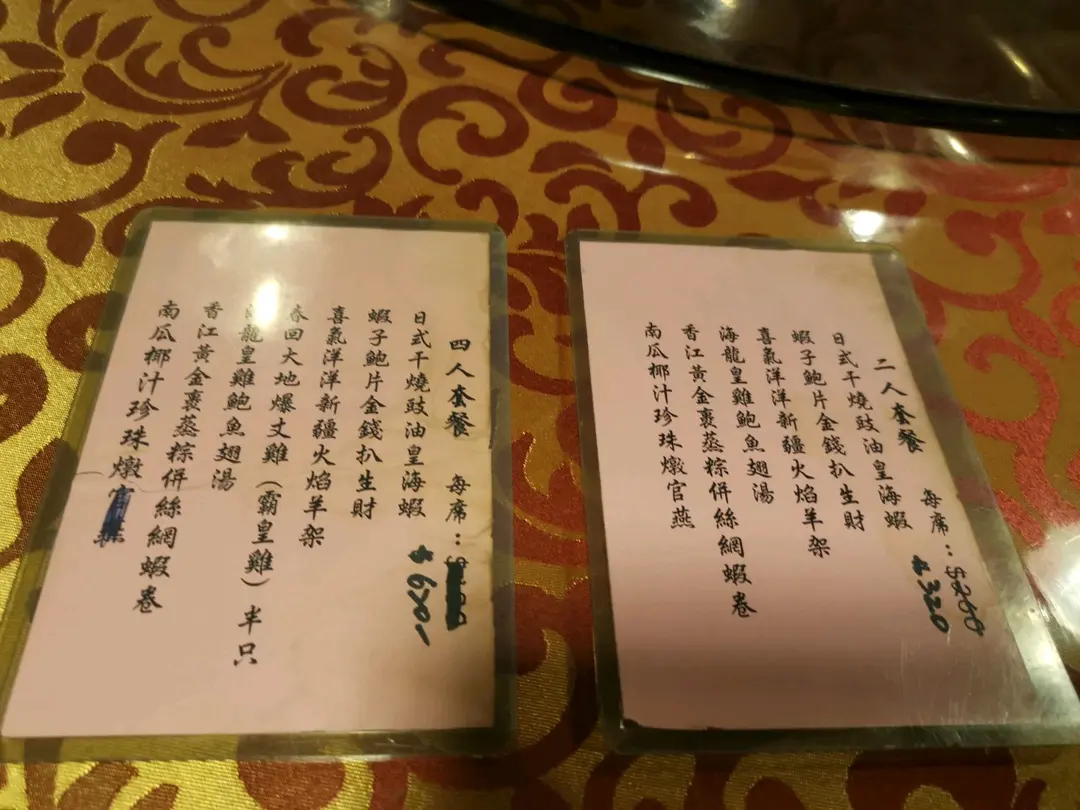 四人套餐 每席：
$620
日式干燒豉油皇海蝦
蝦子鮑片金錢扒生財
喜氣洋洋新疆火焰羊架
春回大地爆丈雞（霸皇雞）半只
龍皇雞鮑魚翅湯
香江黃金裹蒸粽併絲網蝦卷
南瓜椰汁珍珠燉
二人套餐 每席：
$320
日式干燒豉油皇海蝦
蝦子鮑片金錢扒生財
喜氣洋洋新疆火焰羊架
海龍皇雞鮑魚翅湯
香江黃金裹蒸粽併絲網蝦卷
南瓜椰汁珍珠燉官燕